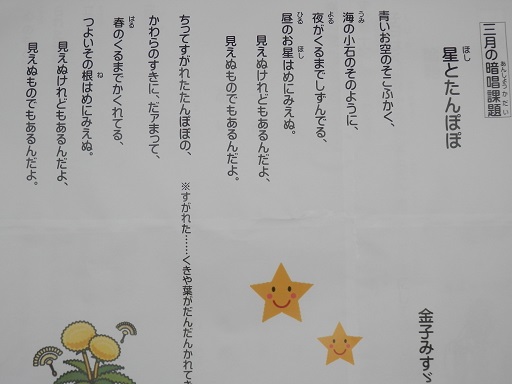 三月の暗唱課題
あんしょうかだい
星とたんぽぽ
ほし
金子みすゞ
青いお空のそこふかく、
海の小石のそのように、
うみ
夜がくるまでしずんでる、
よる
昼のお星はめにみえぬ。
ひる ほし
見えぬけれどもあるんだよ、
見えぬものでもあるんだよ。
ちってすがれたたんぽぽの、
かわらのすきに、だァまって、
春のくるまでかくれてる、
はる
つよいその根はめにみえぬ。
ね
見えぬけれどもあるんだよ、
見えぬものでもあるんだよ。
※すがれた……くきや葉がだんだんかれてき